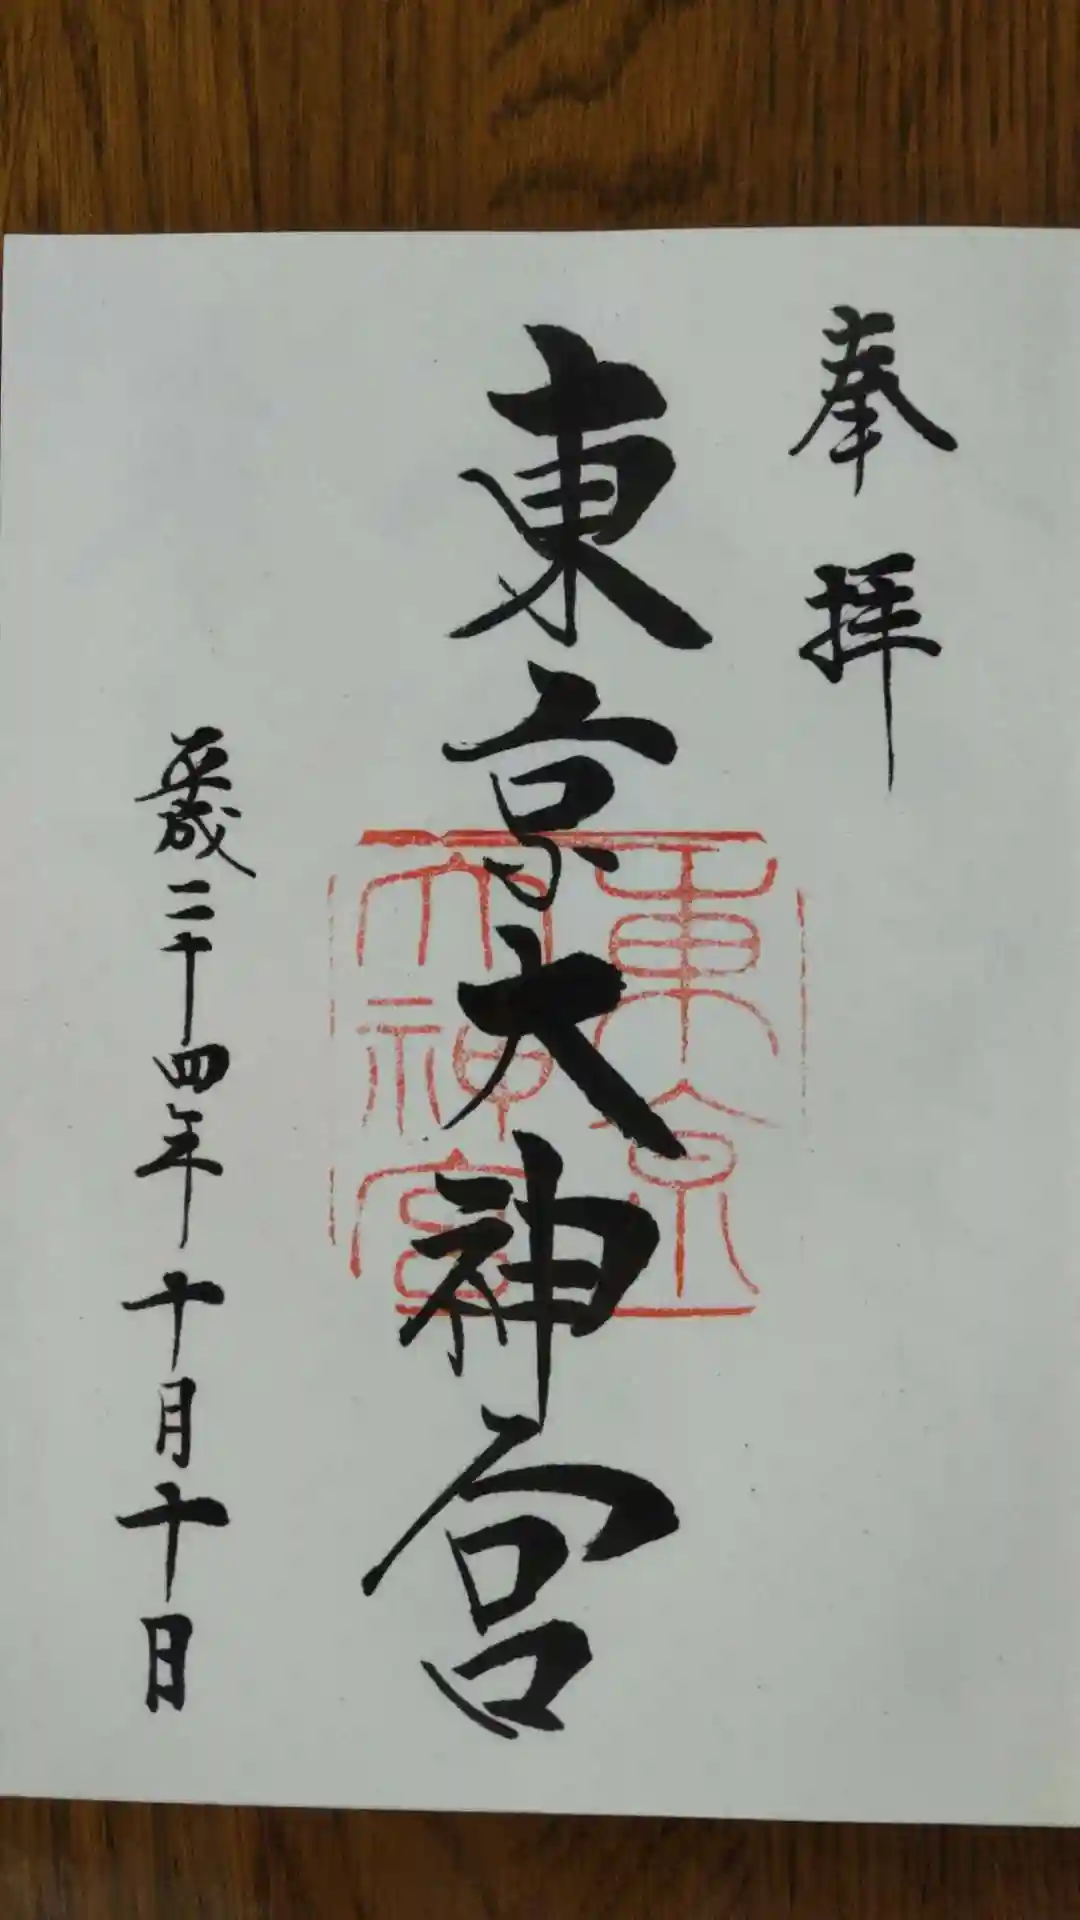 奉拝
東京大神宮
東京
大神宮
平成二十四年十月十日